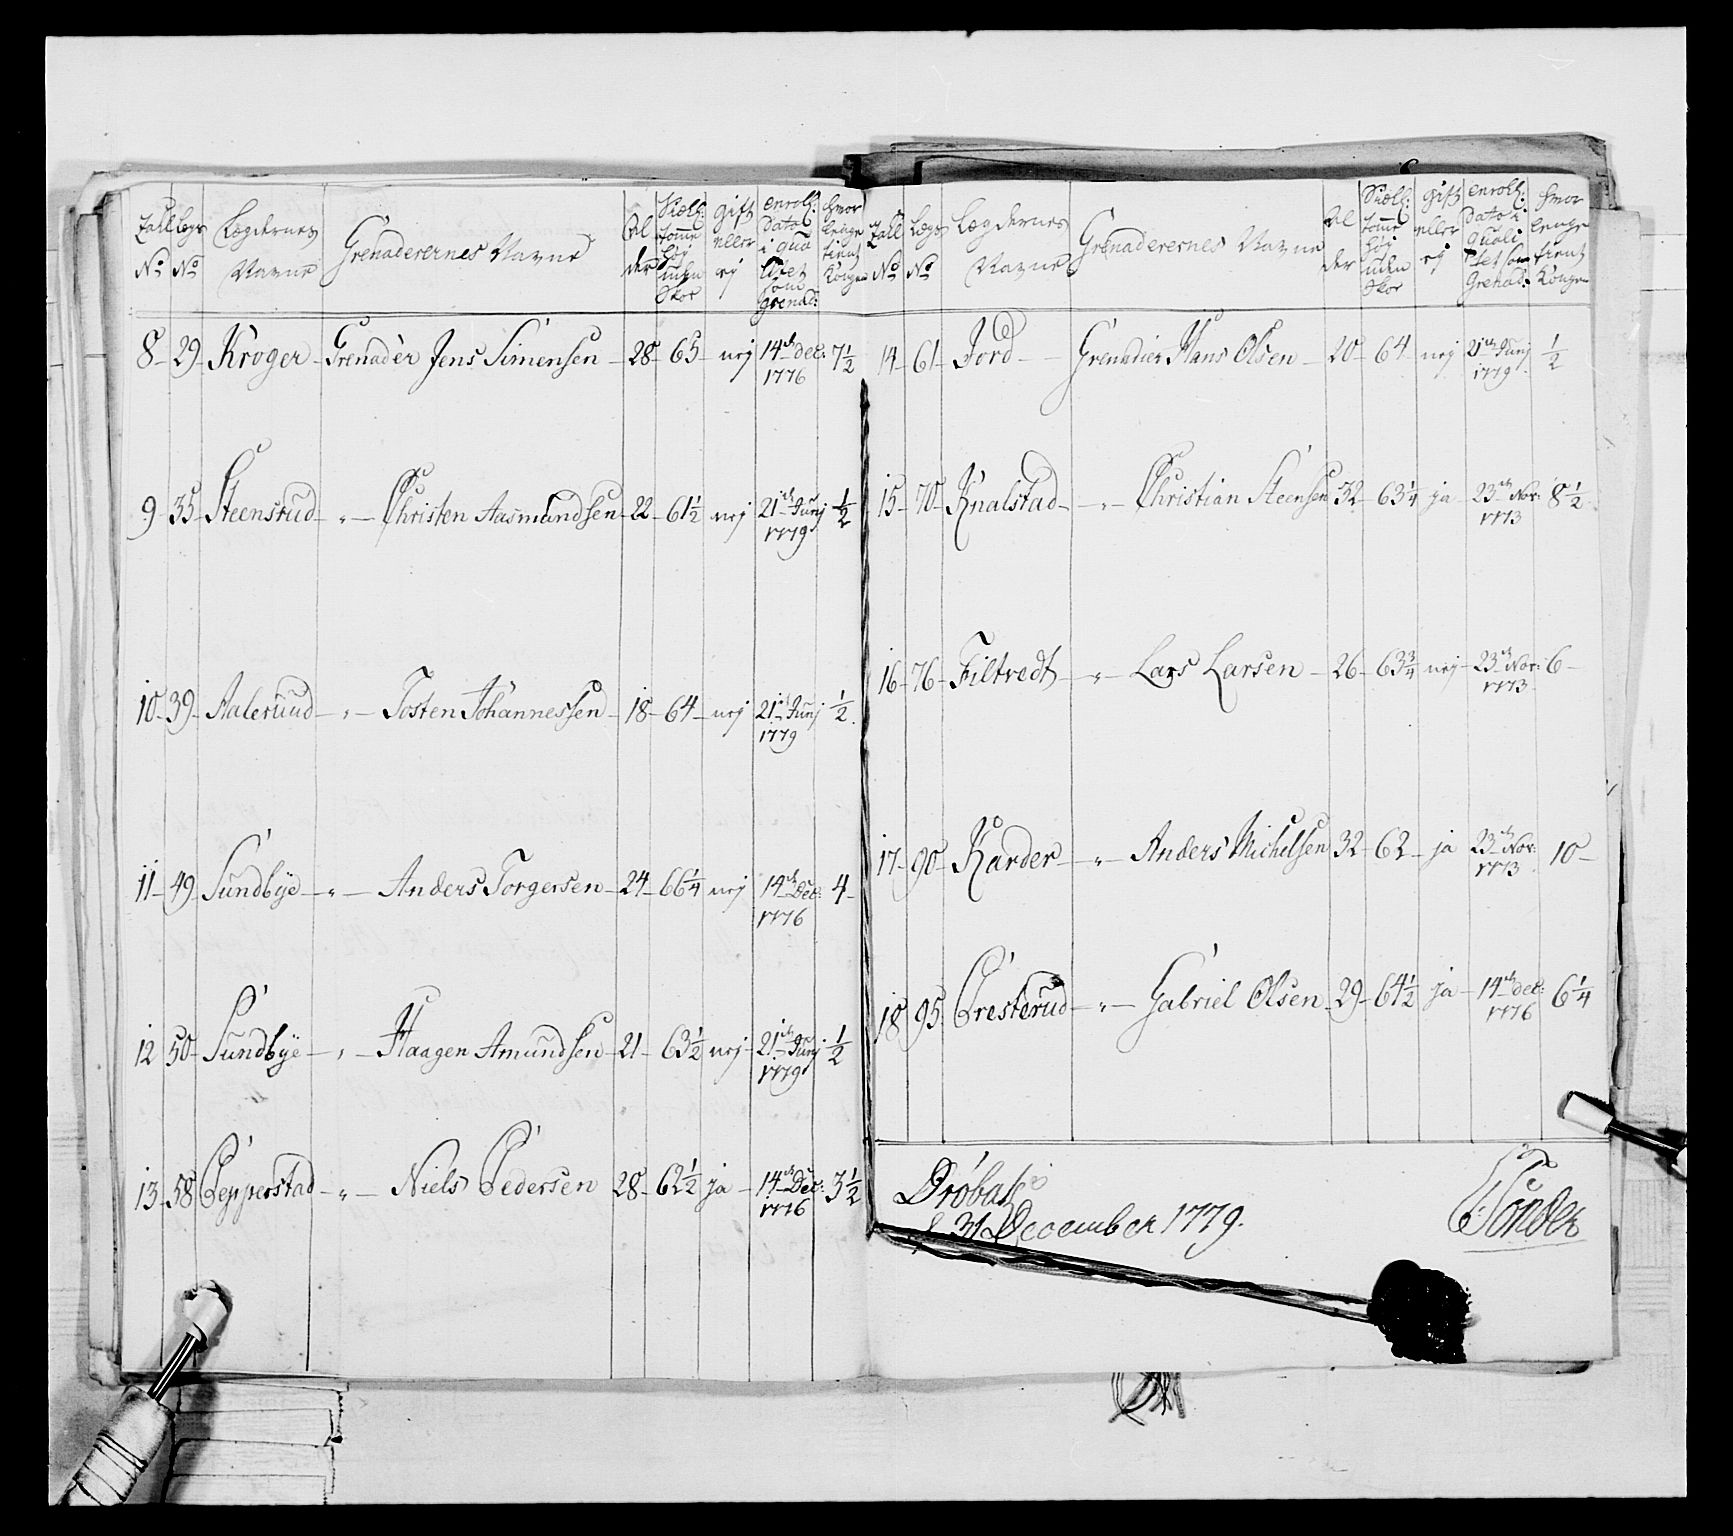 Tall No Legs No Lægdernes Navne Grenaderernes Navne Al der Siælf: tomme høj uden Skoe gift eller ej enroll: Dato i qua litet som Grenad: hvor lenge tient Kongen
8 - 29 - Kroger - Grenadèr Jens Simensen - 28 - 65 - nej 14de dec: 1776 7 1/2
9 - 35 - Steensrud - " - Christen Aasmundsen - 22 - 61 1/2 nej 21de Junj 1779 1/2
10 - 39 - Aalerund - " - Tosten Johannessen - 18 - 64 - nej 21de Junj 1779 1/2
11 - 49 - Sundbye - " - Anders Torgersen - 24 - 66 1/4 nej 14de Dec: 1776 4 -
12 50 - Sundbye - " - Haagen Amundsen - 21 - 63 1/2 nej - 21de Junj 1779 1/2
13 - 58 - Pepperstad - " - Niels Pedersen 28 - 62 1/2 ja - 14de Dec: 1776 3 1/2
Tall No Legs No Lægdernes Navne Grenaderernes Navne Al der Siælf: tomme høj uden Skoe gift eller ej enroll: Dato i Quali tet som Grenad: hvor lenge tient Kongen
14 - 61 - Jord - Grenadier Hans Olsen - 20 - 64 - nej 21de Junj 1779 1/2
15 - 70 - Knalstad - " - Christian Steensen 32 - 63 1/4 ja - 23de Nov: 1773 8 1/2
16 - 76 - Filtvedt - " - Lars Larsen - 26 - 63 3/4 nej - 23de Nov: 1773 6 -
17 - 90 - Karder - " - Anders Michelsen 32 - 62 - ja 23de Nov: 1773 10 -
18 95 Presterud - " - Gabriel Olsen 29 - 64 1/2 ja - 14de dec: 1776 6 1/4
Drøbak
d 31 December 1779.
Tønder